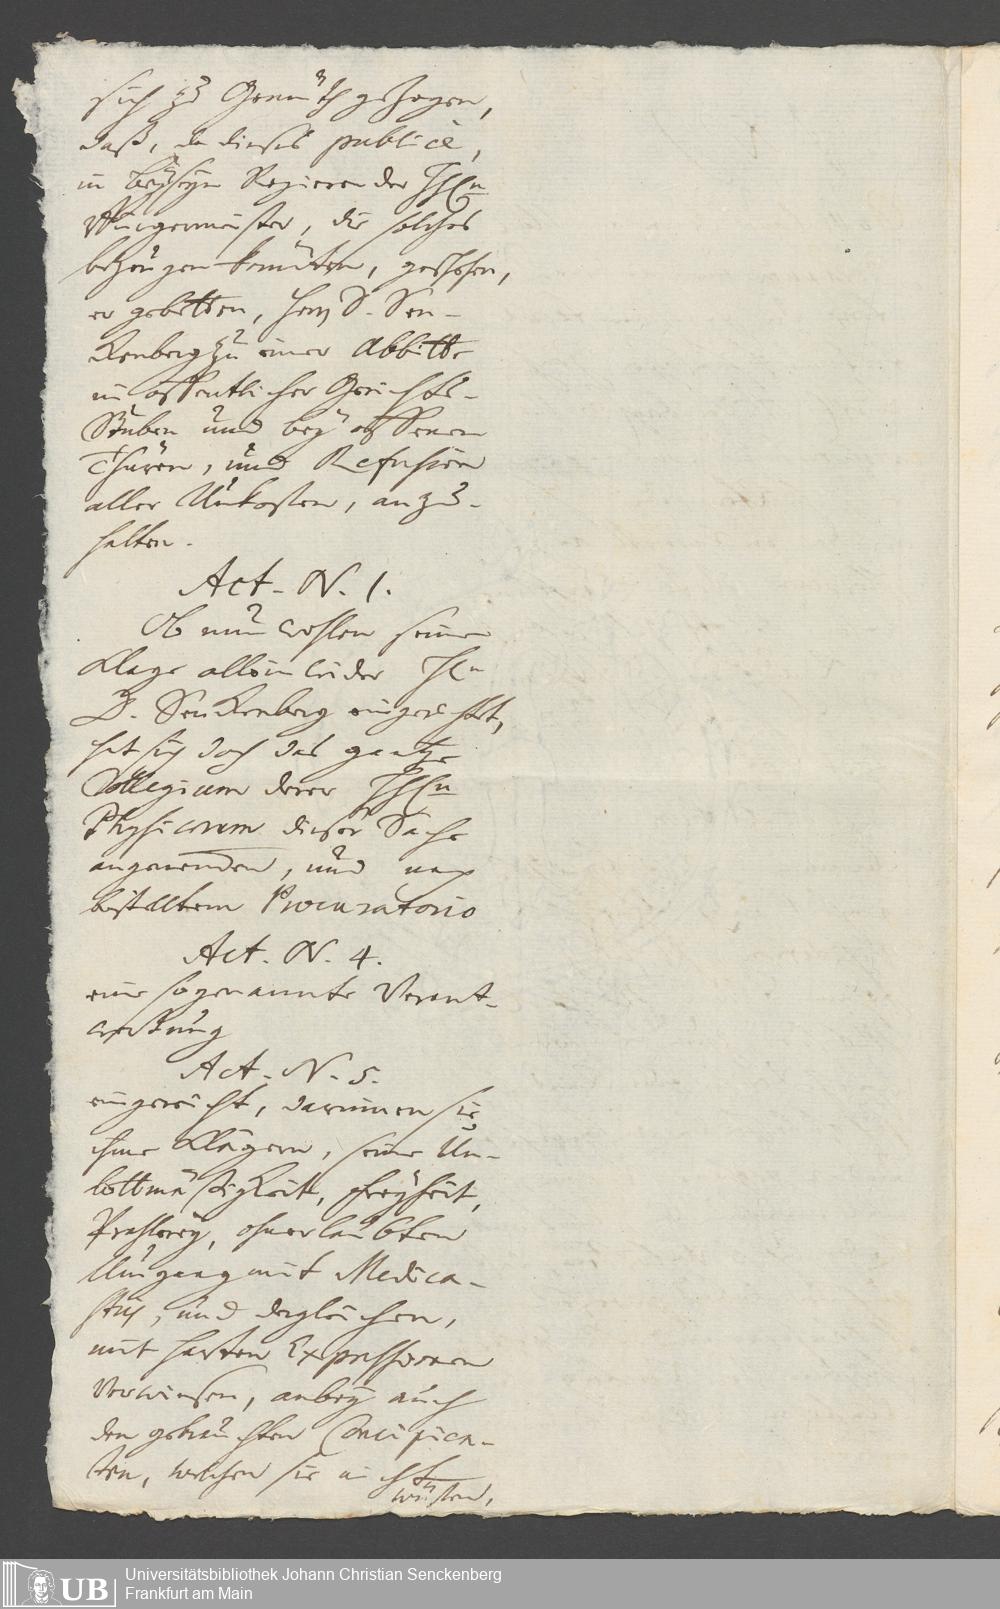 sich zu Gemüth gezogen,
daß, da dieses publice,
in beyseyn Regierender HHn
Bürgermeister, die solches
bezeugen könnten, geschehen,
er gebetten, Herrn D. Sen-
kenberg zu einer Abbitte
in öffentlicher Gerichts-
Stuben und bey offenen
Thüren, und Refusion
aller Unkosten, anzu-
halten.
Act. N. 1.
Ob nun wohlen seine
Klage allein wider Hn
D. Senckenberg eingericht,
hat sich doch das gantze
Collegium derer HHn
Physicorum dieser Sache
angenommen, und nach
bestelltem Procuratorio
Act. N. 4.
eine sogenannte Verant-
wortung
Act. N. 5.
eingereicht, darinnen sie
ihme Klägern, seine Un-
bottmäßigkeit, Freyheit,
Prahlerey, ohnerlaubten
Umgang mit Medica-
stris, und dergleichen,
mit harten Expressionen
verwiesen, anbey auch
den gebrauchten Concipien-
ten, welchen sie nicht
wüsten,
Universitätsbibliothek Johann Christian Senckenberg
Frankfurt am Main
UB